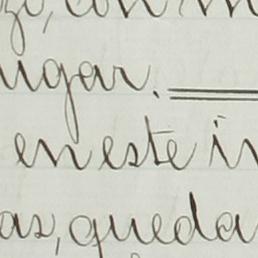 zo, con m
ugar.
en este in
as, queda